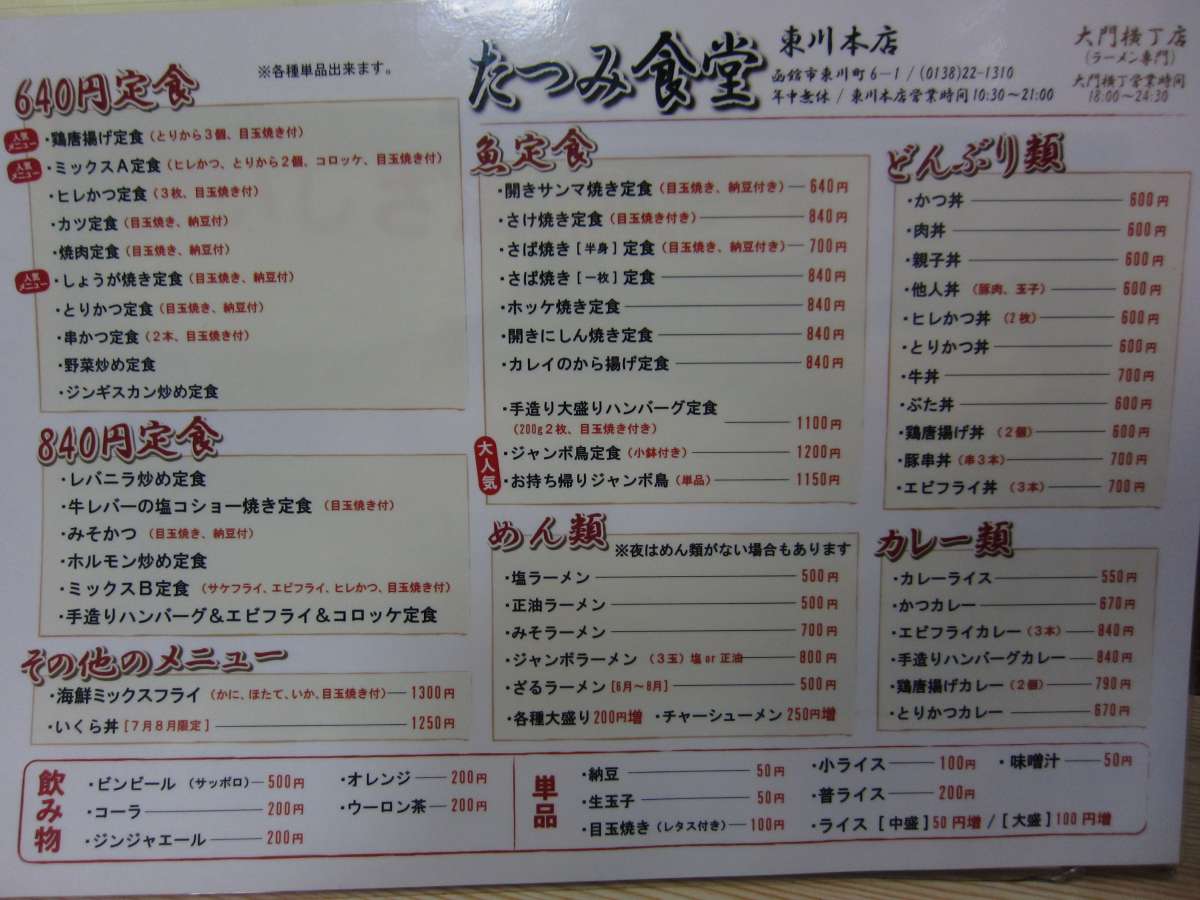 たつみ食堂 東川本店
函館市東川町6－1 / (0138)22-1310
年中無休 / 東川本店営業時間10:30～21:00
大門横丁店
(ラーメン専門)
大門横丁営業時間
18:00～24:30
640円定食 ※各種単品出来ます。
人気メニュー ・鶏唐揚げ定食(とりから3個、目玉焼き付)
人気メニュー ・ミックスA定食(ヒレかつ、とりから2個、コロッケ、目玉焼き付)
・ヒレかつ定食(3枚、目玉焼き付)
・カツ定食(目玉焼き、納豆付)
・焼肉定食(目玉焼き、納豆付)
人気メニュー ・しょうが焼き定食(目玉焼き、納豆付)
・とりかつ定食(目玉焼き、納豆付)
・串かつ定食(2本、目玉焼き付)
・野菜炒め定食
・ジンギスカン炒め定食
840円定食
・レバニラ炒め定食
・牛レバーの塩コショー焼き定食(目玉焼き付)
・みそかつ(目玉焼き、納豆付)
・ホルモン炒め定食
・ミックスB定食(サケフライ、エビフライ、ヒレかつ、目玉焼き付)
・手造りハンバーグ＆エビフライ＆コロッケ定食
その他のメニュー
・海鮮ミックスフライ(かに、ほたて、いか、目玉焼き付) 1300円
・いくら丼[7月8月限定] 1250円
魚定食
・開きサンマ焼き定食(目玉焼き、納豆付き) 640円
・さけ焼き定食(目玉焼き付き) 840円
・さば焼き[半身]定食(目玉焼き、納豆付き) 700円
・さば焼き[一枚]定食 840円
・ホッケ焼き定食 840円
・開きにしん焼き定食 840円
・カレイのから揚げ定食 840円
・手造り大盛りハンバーグ定食
(200g2枚、目玉焼き付き) 1100円
大人気 ・ジャンボ鳥定食(小鉢付き) 1200円
・お持ち帰りジャンボ鳥(単品) 1150円
めん類 ※夜はめん類がない場合もあります
・塩ラーメン 500円
・正油ラーメン 500円
・みそラーメン 700円
・ジャンボラーメン(3玉)塩or正油 800円
・ざるラーメン[6月～8月] 500円
・各種大盛り200円増 ・チャーシューメン250円増
どんぶり類
・かつ丼 600円
・肉丼 600円
・親子丼 600円
・他人丼(豚肉、玉子) 600円
・ヒレかつ丼(2枚) 600円
・とりかつ丼 600円
・牛丼 700円
・ぶた丼 600円
・鶏唐揚げ丼(2個) 600円
・豚串丼(串3本) 700円
・エビフライ丼(3本) 700円
カレー類
・カレーライス 550円
・かつカレー 670円
・エビフライカレー(3本) 840円
・手造りハンバーグカレー 840円
・鶏唐揚げカレー(2個) 790円
・とりかつカレー 670円
飲み物
・ビンビール(サッポロ) 500円
・コーラ 200円
・ジンジャエール 200円
・オレンジ 200円
・ウーロン茶 200円
単品
・納豆 50円
・生玉子 50円
・目玉焼き(レタス付き) 100円
・小ライス 100円 ・味噌汁 50円
・普ライス 200円
・ライス[中盛]50円増/[大盛]100円増